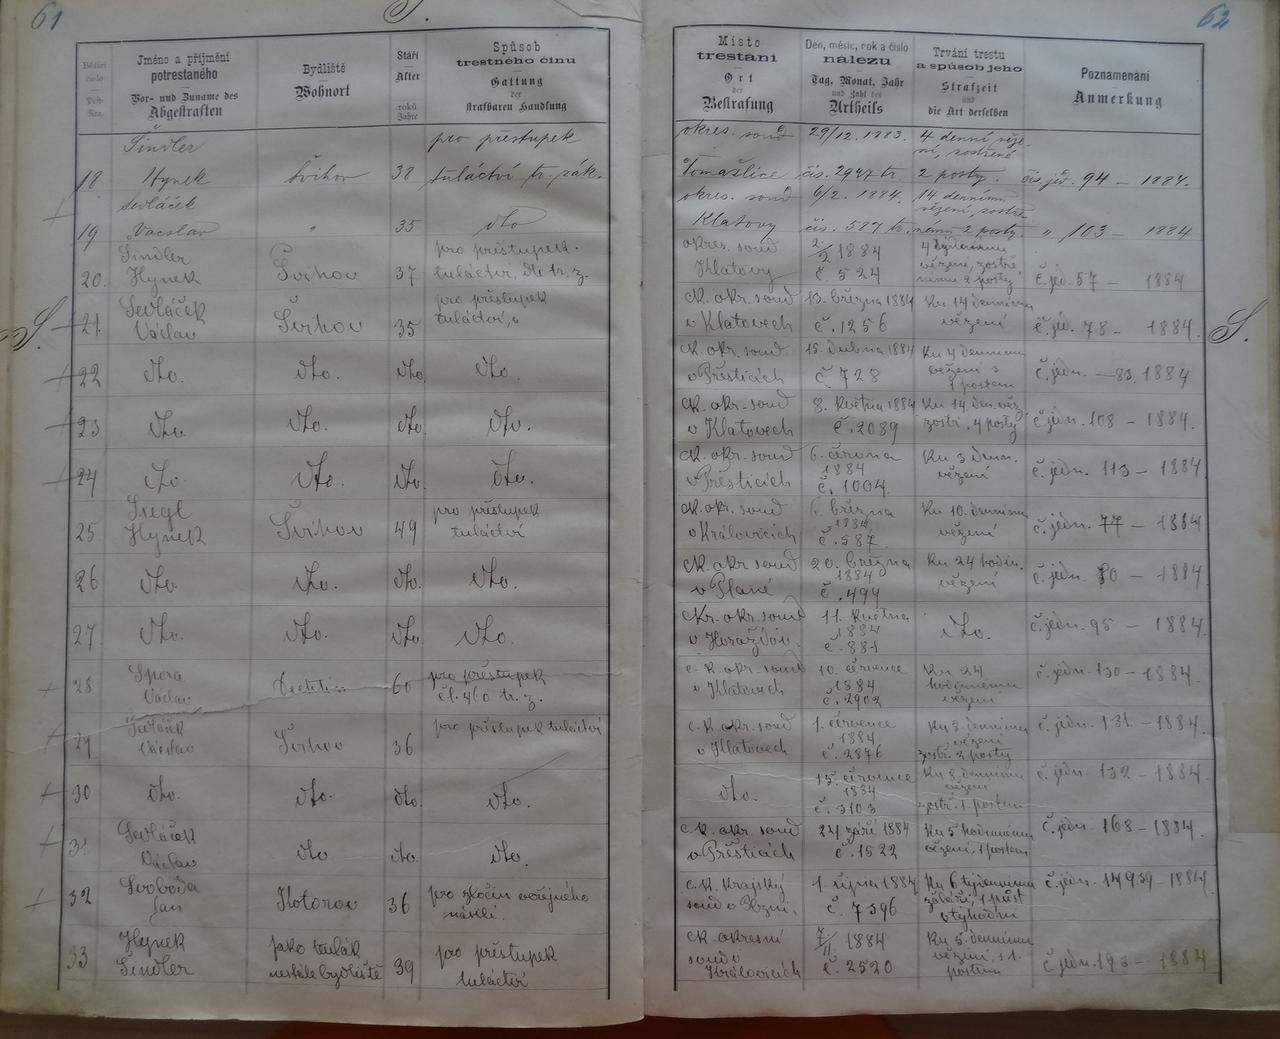 61
S.
62
Běžící číslo
Post-Nro.
Jméno a příjmění
potrestaného
Vor- und Zuname des
Abgestraften
Bydliště
Wohnort
Stáří
Alter
roků
Jahre
Spůsob
trestného činu
Gattung
der
strafbaren Handlung
Místo
trestání
Ort
der
Bestrafung
Den, měsíc, rok a číslo
nálezu
Tag, Monat, Jahr
und Zahl des
Urtheils
Trvání trestu
a spůsob jeho
Strafzeit
und
die Art derselben
Poznamenání
Anmerkung
Šindler
pro přestupek
okres. soud
29/12. 1883.
4 denní věze-
ní, zostřené
18
Hynek
Švihov
38
tuláctví tr. zák.
čís. 2947 tr.
2 posty.
čís. jed. 94 – 1884.
Sedláček
okres. soud
6/2. 1884.
14 denními
vězení, zostře
19
Václav
"
35
dto
Klatovy
čís. 587 tr.
nému 2 posty.
" 103 – 1884
20.
Šindler
Hynek
Švihov
37
pro přestupek
tuláctví, dle tr. z.
okres. soud
Klatovy
2/2 1884
č 524
vězení, zostře-
nímu 2 posty
č. jed. 57 – 1884
S.
21
Sedláček
Václav
Švihov
35
pro přestupek
tuláctví,
ck. okr. soud
v Klatovech
13. března 1884
č. 1256
Ku 14 dennímu
vězení
č. jed. 78 – 1884.
S.
22
dto.
dto.
dto.
dto.
ck. okr. soud
v Přešticích
15. dubna 1884
č 728
Ku 4 dennímu
vězení s
1 postem
č. jedn. – 83. 1884
23
dto.
dto.
dto.
dto.
ck. okr. soud
v Klatovech
8. května 1884
č. 2089
Ku 14. den. věz.
zostř. 4 posty
č. jedn. 108 – 1884.
24
dto.
dto.
dto.
dto.
ck. okr. soud
v Přešticích
6. června
1884
č. 1004
Ku 3 denn.
vězení
č. jedn. 113 – 1884.
25
Hynek
Švihov
49
pro přestupek
tuláctví
ck. okr. soud
v Královicích
6. března
1884
č. 587
Ku 10. dennímu
vězení
č. jedn. 77 – 1884
26
dto.
dto.
dto.
dto.
ck. okr. soud
v Plané
20. března
1884
č. 499
Ku 24 hodin.
vězení
č. jedn. 80 – 1884.
27
dto.
dto.
dto.
dto.
ck. okr. soud
v Horažďov.
11. května
1884
č. 881
dto.
č. jedn. 95 – 1884
28
Spora
Václav
60
pro přestupek
čl. 460 tr. z.
c. k. okr. soud
v Klatovech
10. července
1884
č. 2902
Ku 24
hodinnému
vězení
č. jedn. 130 – 1884.
29
Sedláček
Václav
Švihov
36
pro přestupek tuláctví
c. k. okr. soud
v Klatovech
1. července
1884
č. 2876
Ku 3. dennímu
vězení
zostř. 2 posty
č. jedn. 131 – 1884.
30
dto.
dto.
dto.
dto.
dto.
15. července
1884
č. 3103
Ku 8. dennímu
vězení
zostř. 1. postem
č. jedn. 132 – 1884.
31
Sedláček
Václav
dto
dto.
dto.
c. k. okr. soud
v Přešticích
24. září 1884
č. 1522
Ku 5 hodinnému
vězení, 1 postem
č. jedn. 168 – 1884.
32
Svoboda
Jan
Kotorov
36
pro zločin veřejného
násilí.
c. k. krajský
soud v Plzni.
1. srpna 1884
č. 7396
Ku 6 týdennímu
žaláři, 1 půst
v týhodni
č. jedn. 14939 – 1884
33
Hynek
Šindler
jako tulák
nestálé bydliště
39
pro přestupek
tuláctví
ck. okresní
soud v
Královicích
7/11 1884
č. 2520
Ku 5. dennímu
vězení, s 1.
postem
č. jedn. 193 – 1884